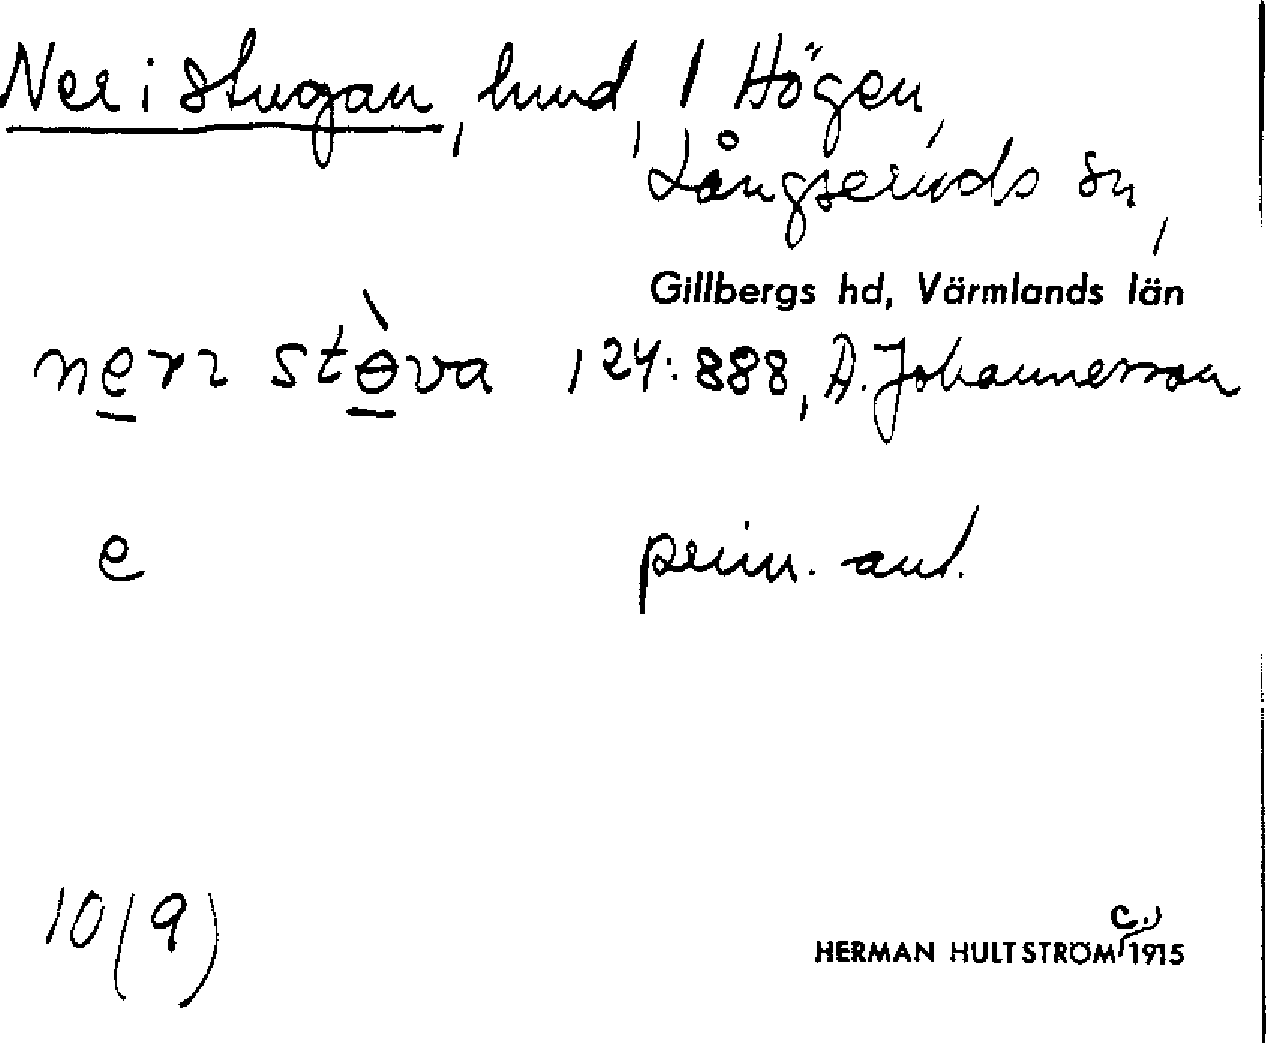 Ner i stugan, hmd, 1 Högen,
Långseruds sn,
Gillbergs hd, Värmlands län
nerr stòva 124:888, A. Johannesson
e prim. ant.
10(9)
c.)
HERMAN HULTSTRÖM 1915